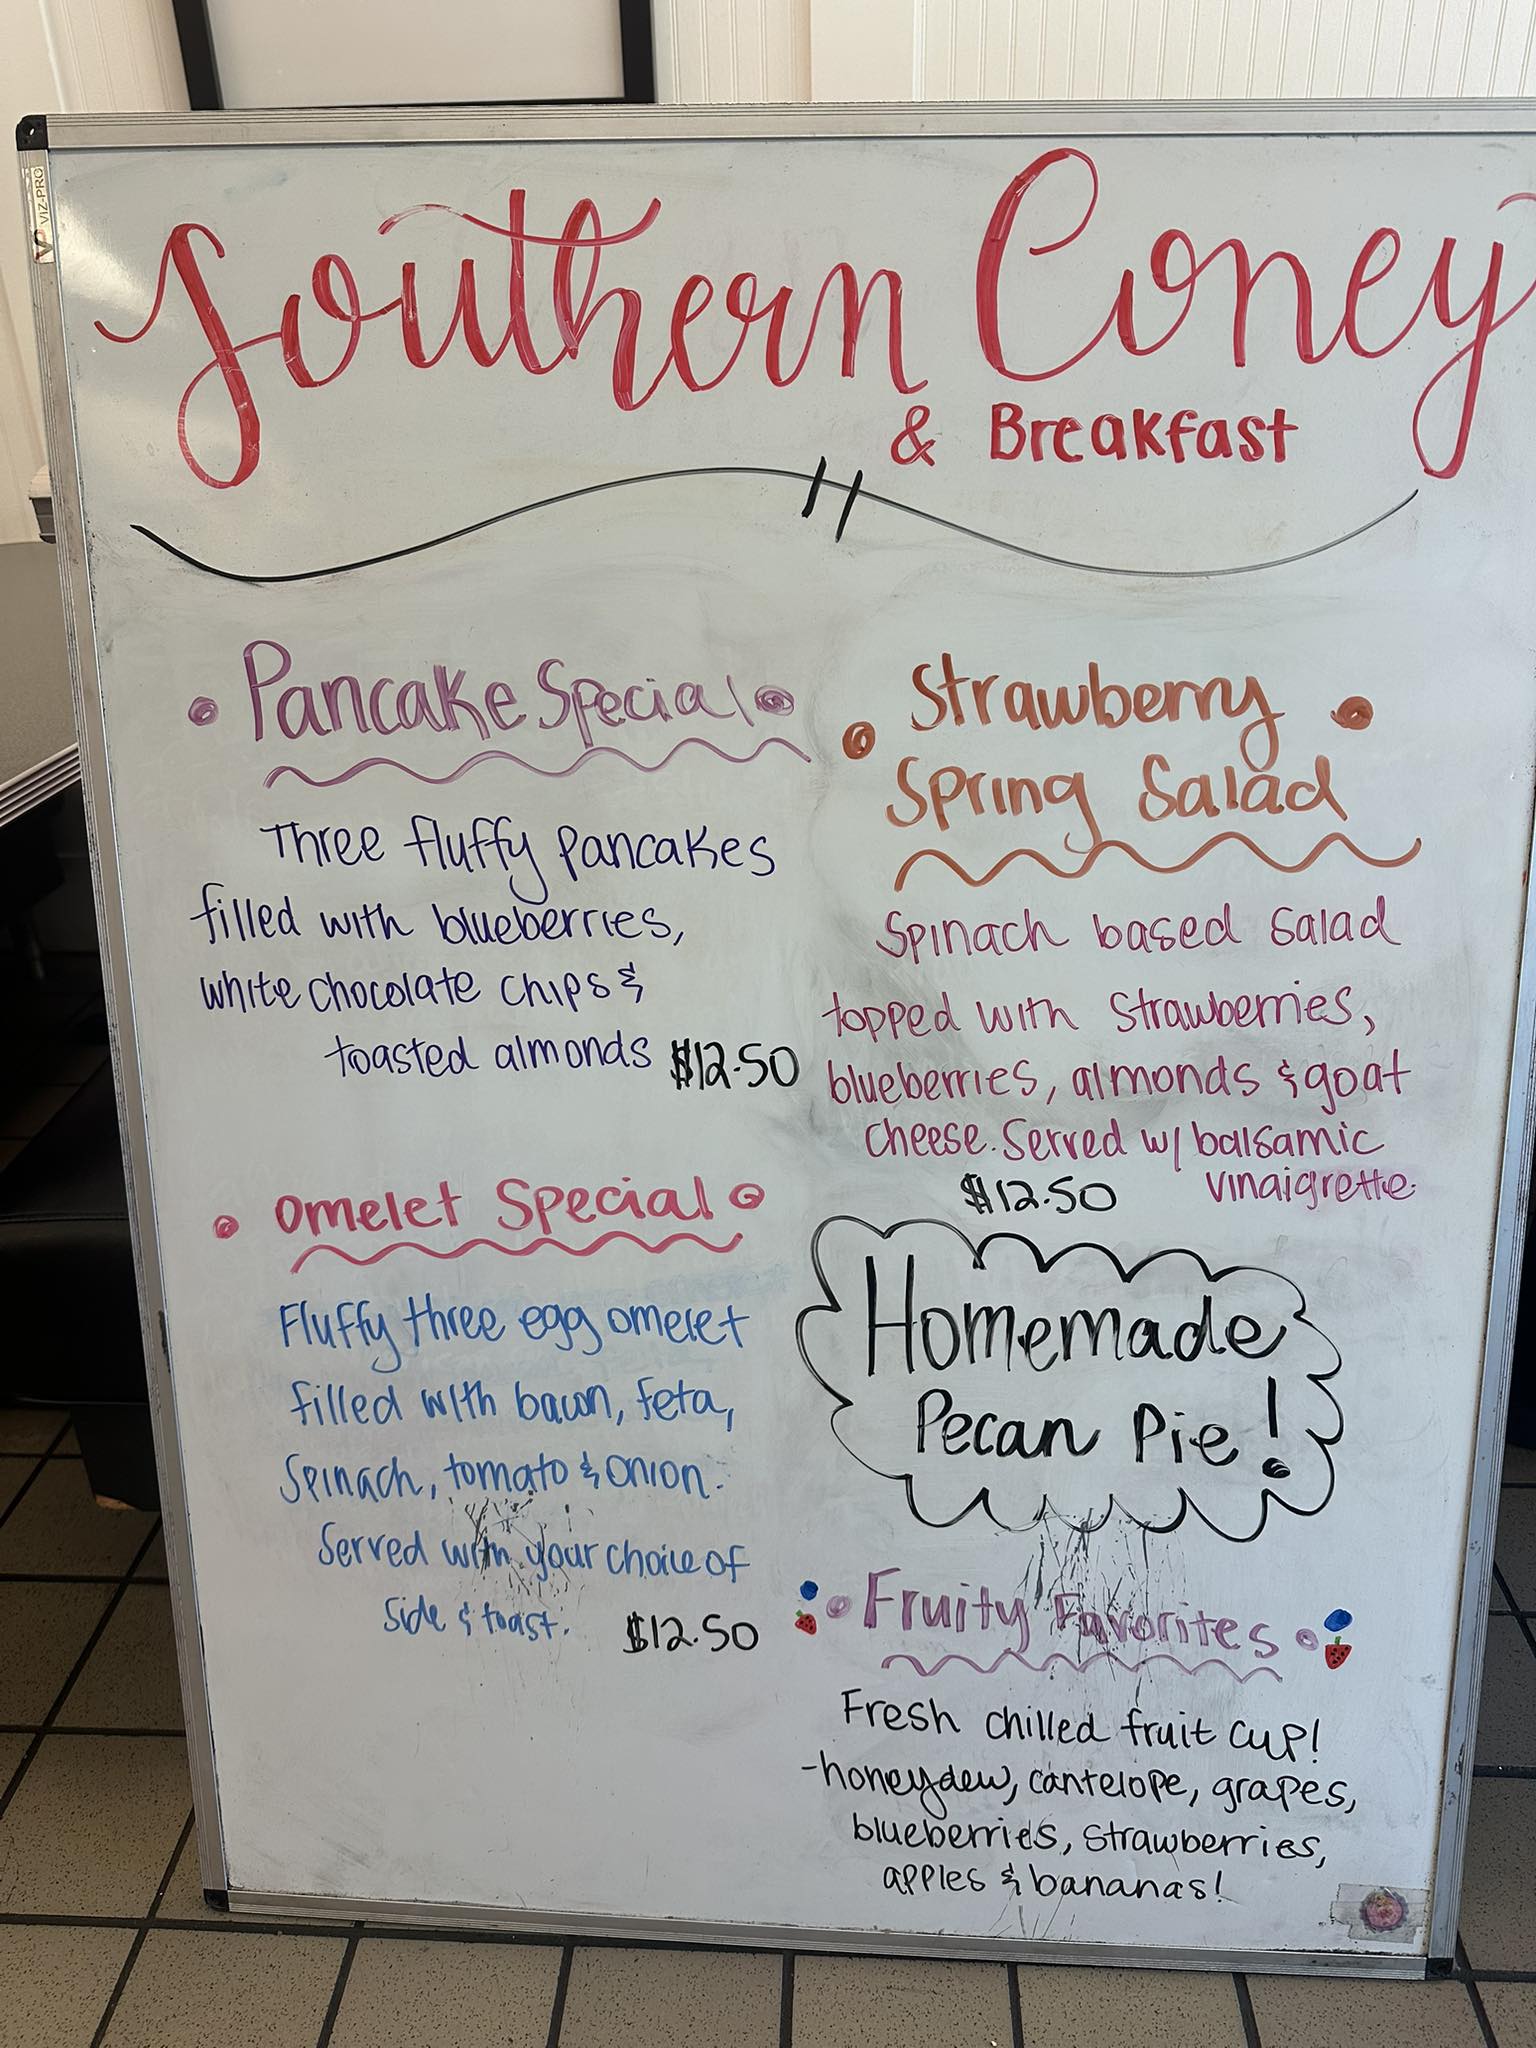 VIZ-PRO
Southern Coney
& Breakfast
Pancake Special
Three fluffy pancakes
filled with blueberries,
white chocolate chips &
toasted almonds $12.50
Omelet Special
Fluffy three egg omelet
filled with bacon, feta,
spinach, tomato & onion.
Served with your choice of
side & toast. $12.50
Strawberry
Spring Salad
Spinach based salad
topped with strawberries,
blueberries, almonds & goat
cheese. Served w/ balsamic
vinaigrette.
$12.50
Homemade
Pecan Pie!
Fruity Favorites
Fresh chilled fruit cup!
-honeydew, cantelope, grapes,
blueberries, strawberries,
apples & bananas!